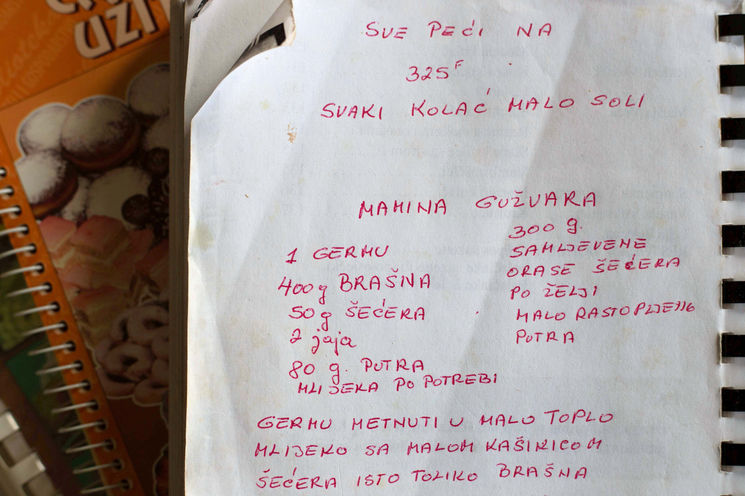 UŽI
SVE PEĆI NA
325F
SVAKI KOLAĆ MALO SOLI
MAMINA GUŽVARA
1 GERMU
400g BRAŠNA
50g ŠEĆERA
2 jaja
80 g. PUTRA
MLIJEKA PO POTREBI
300 g.
SAMLJEVENE
ORASE ŠEĆERA
PO ŽELJI
MALO RASTOPLJENOG
PUTRA
GERMU METNUTI U MALO TOPLO
MLIJEKO SA MALOM KAŠIKICOM
ŠEĆERA ISTO TOLIKO BRAŠNA